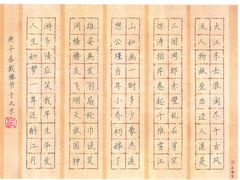 大江东去浪淘尽千古风
流人物故垒西边人道是
三国周郎赤壁乱石穿空
惊涛拍岸卷起千堆雪江
山如画一时多少豪杰遥
想公瑾当年小乔初嫁了
雄姿英发羽扇纶巾谈笑
间樯橹灰飞烟灭故国神
游多情应笑我早生华发
人生如梦一尊还酹江月
庚子春